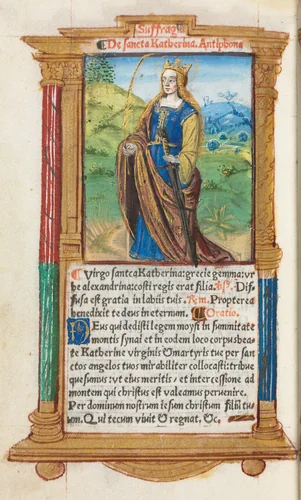 Suffragia
De sancta Katherina. Antiphona
Virgo sancta Katherina: grecie gemma: vr
be alexandrina: costi regis erat filia. ℣. Dif
fusa est gratia in labiis tuis. Rm. Propterea
benedixit te deus in eternum. Oratio.
DEus qui dedisti legem moysi in summitate
montis synai et in eodem loco corpus bea
te Katherine virginis & martyris tue per san
ctos angelos tuos mirabiliter collocasti: tribue
quesumus: vt eius meritis, et intercessione ad
montem qui christus est valeamus peruenire.
Per dominum nostrum iesum christum filiū tu
um. Qui tecum viuit & regnat. &c.